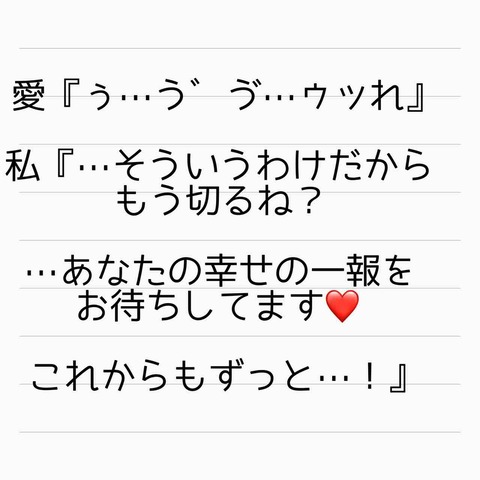 愛『ぅ…ゔ゛ゔ…ゥッれ』
私『…そういうわけだから
もう切るね？
…あなたの幸せの一報を
お待ちしてます❤️
これからもずっと…！』